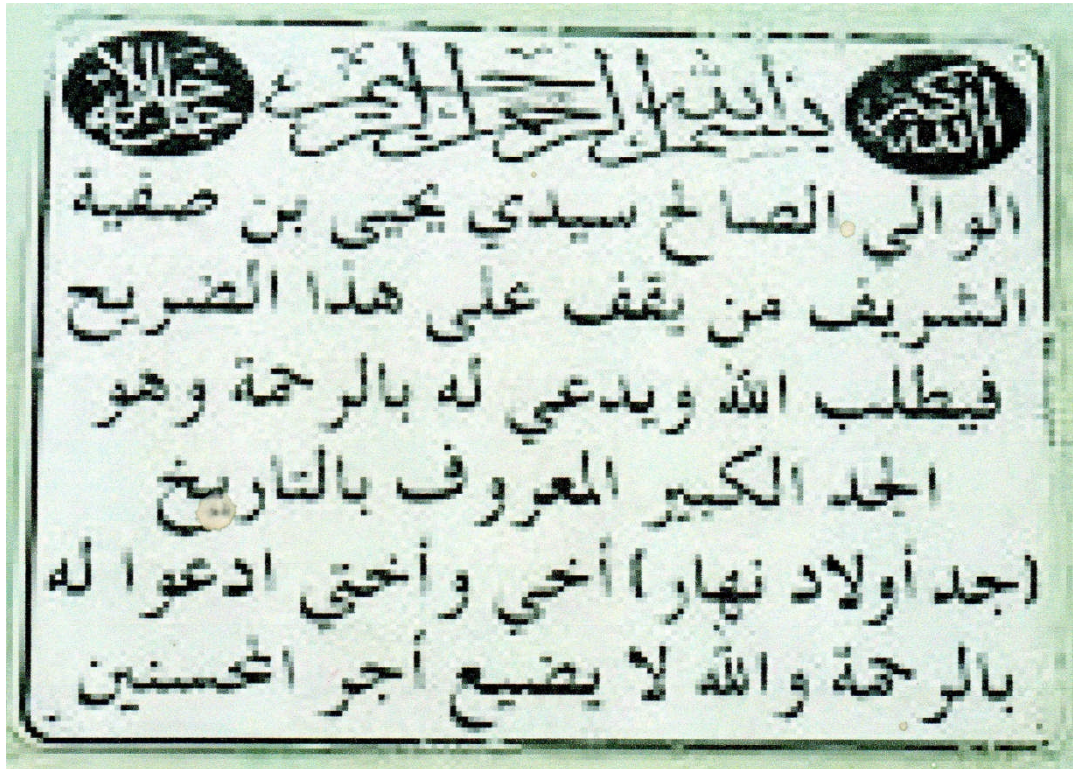 بسم الله الرحمن الرحيم
الوالي الصالح سيدي يحيى بن صفية
الشريف من يقف على هذا الضريح
فيطلب الله ويدعي له بالرحمة وهو
الجد الكبير المعروف بالتاريخ
(جد أولاد نهار) أخي وأختي ادعوا له
بالرحمة والله لا يضيع أجر المحسنين